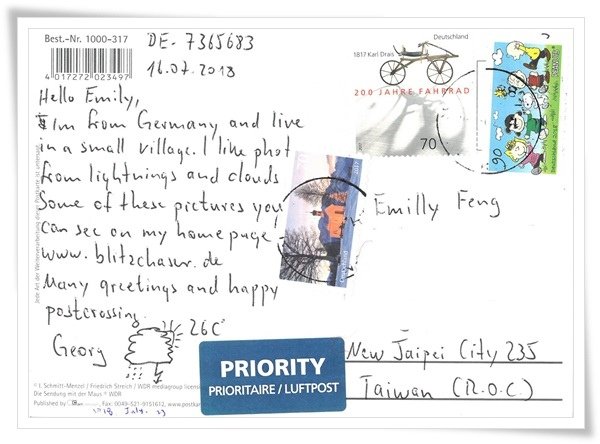 Best.-Nr. 1000-317
4 017272 023497
DE-7365683
16.07.2018
Hello Emily,
I'm from Germany and live
in a small village. I like phot
from lightnings and clouds
Some of these pictures you
can see on my homepage
www.blitzchaser.de
Many greetings and happy
postcrossing.
26C°
Georg
Jede Art der Weiterverarbeitung dieser Postkarte ist untersagt
© I. Schmitt-Menzel / Friedrich Streich / WDR mediagroup licens
Die Sendung mit der Maus ® WDR
Published by
Fax. 0049-521-9151612, www.postkart
Deutschland
1817 Karl Drais
200 JAHRE FAHRRAD
70
90
2017
Emilly Feng
PRIORITY
PRIORITAIRE / LUFTPOST
New Taipei City 235
Taiwan (R.O.C)